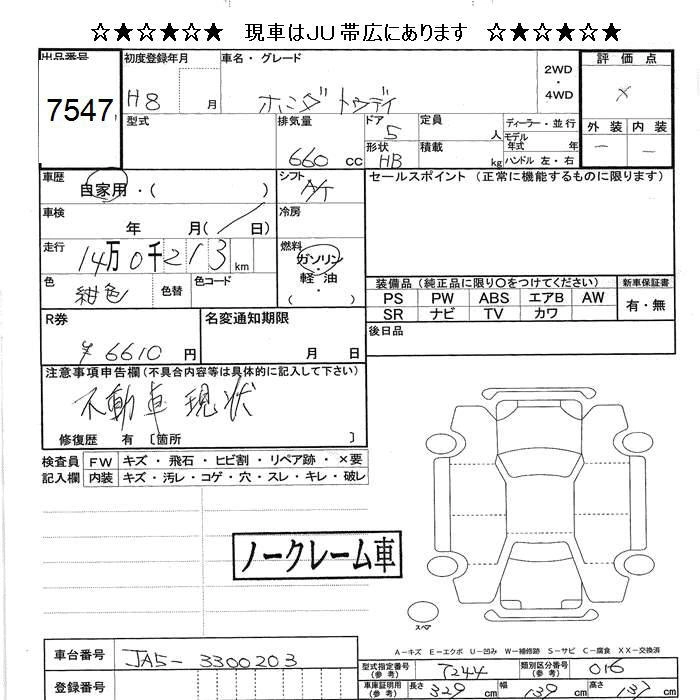 ☆★☆★☆★☆ 現車はJU帯広にあります ☆★☆★☆★☆
出品番号 初度登録年月 車名・グレード 2WD・4WD 評価点
7547 H8 月 ホンダ トゥデイ ×
型式 排気量 660 cc ドア 5 定員 人 ディーラー・並行 外装 内装
形状 HB 積載 kg モデル年式 年 ー ー
ハンドル 左・右
車歴 自家用・( ) シフト A/T セールスポイント (正常に機能するものに限ります)
車検 年 月( 日) 冷房
走行 14万0千213km 燃料 ガソリン・軽油
( )
色 紺色 色替 色コード
装備品(純正品に限り〇をつけてください) 新車保証書
PS PW ABS エアB AW 有・無
SR ナビ TV カワ
R券 ¥6610円 名変通知期限 月 日 後日品
注意事項申告欄(不具合内容等は具体的に記入して下さい)
不動車 現状
修復歴 有 〔箇所 〕
検査員 FW キズ・飛石・ヒビ割・リペア跡・×要
記入欄 内装 キズ・汚レ・コゲ・穴・スレ・キレ・破レ
ノークレーム車
スペア
A-キズ E-エクボ U-凹み W-補修跡 S-サビ C-腐食 XX-交換済
車台番号 JA5-3300203
型式指定番号(参考) 7244 類別区分番号(参考) 016
登録番号
車庫証明用(参考) 長さ 329 cm 幅 139 cm 高さ